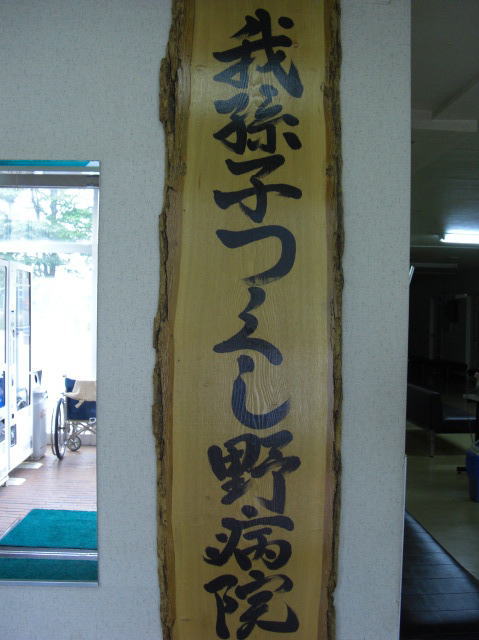 我孫子つくし野病院